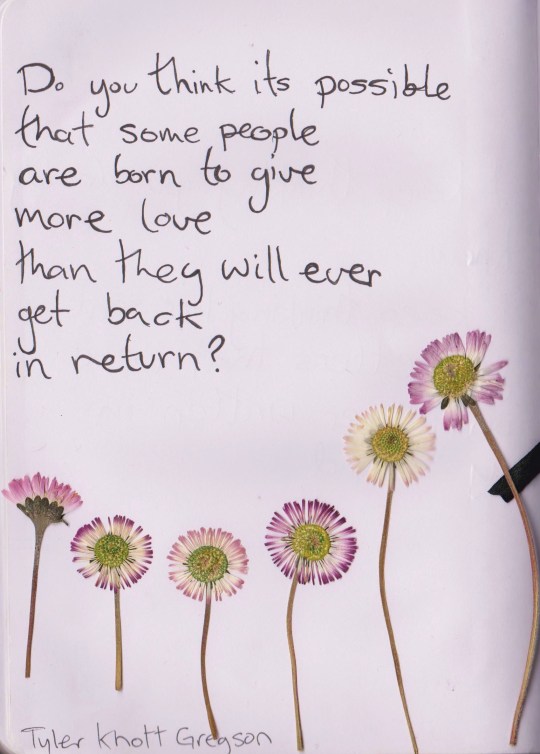 Do you think its possible
that some people
are born to give
more love
than they will ever
get back
in return?
Tyler Knott Gregson